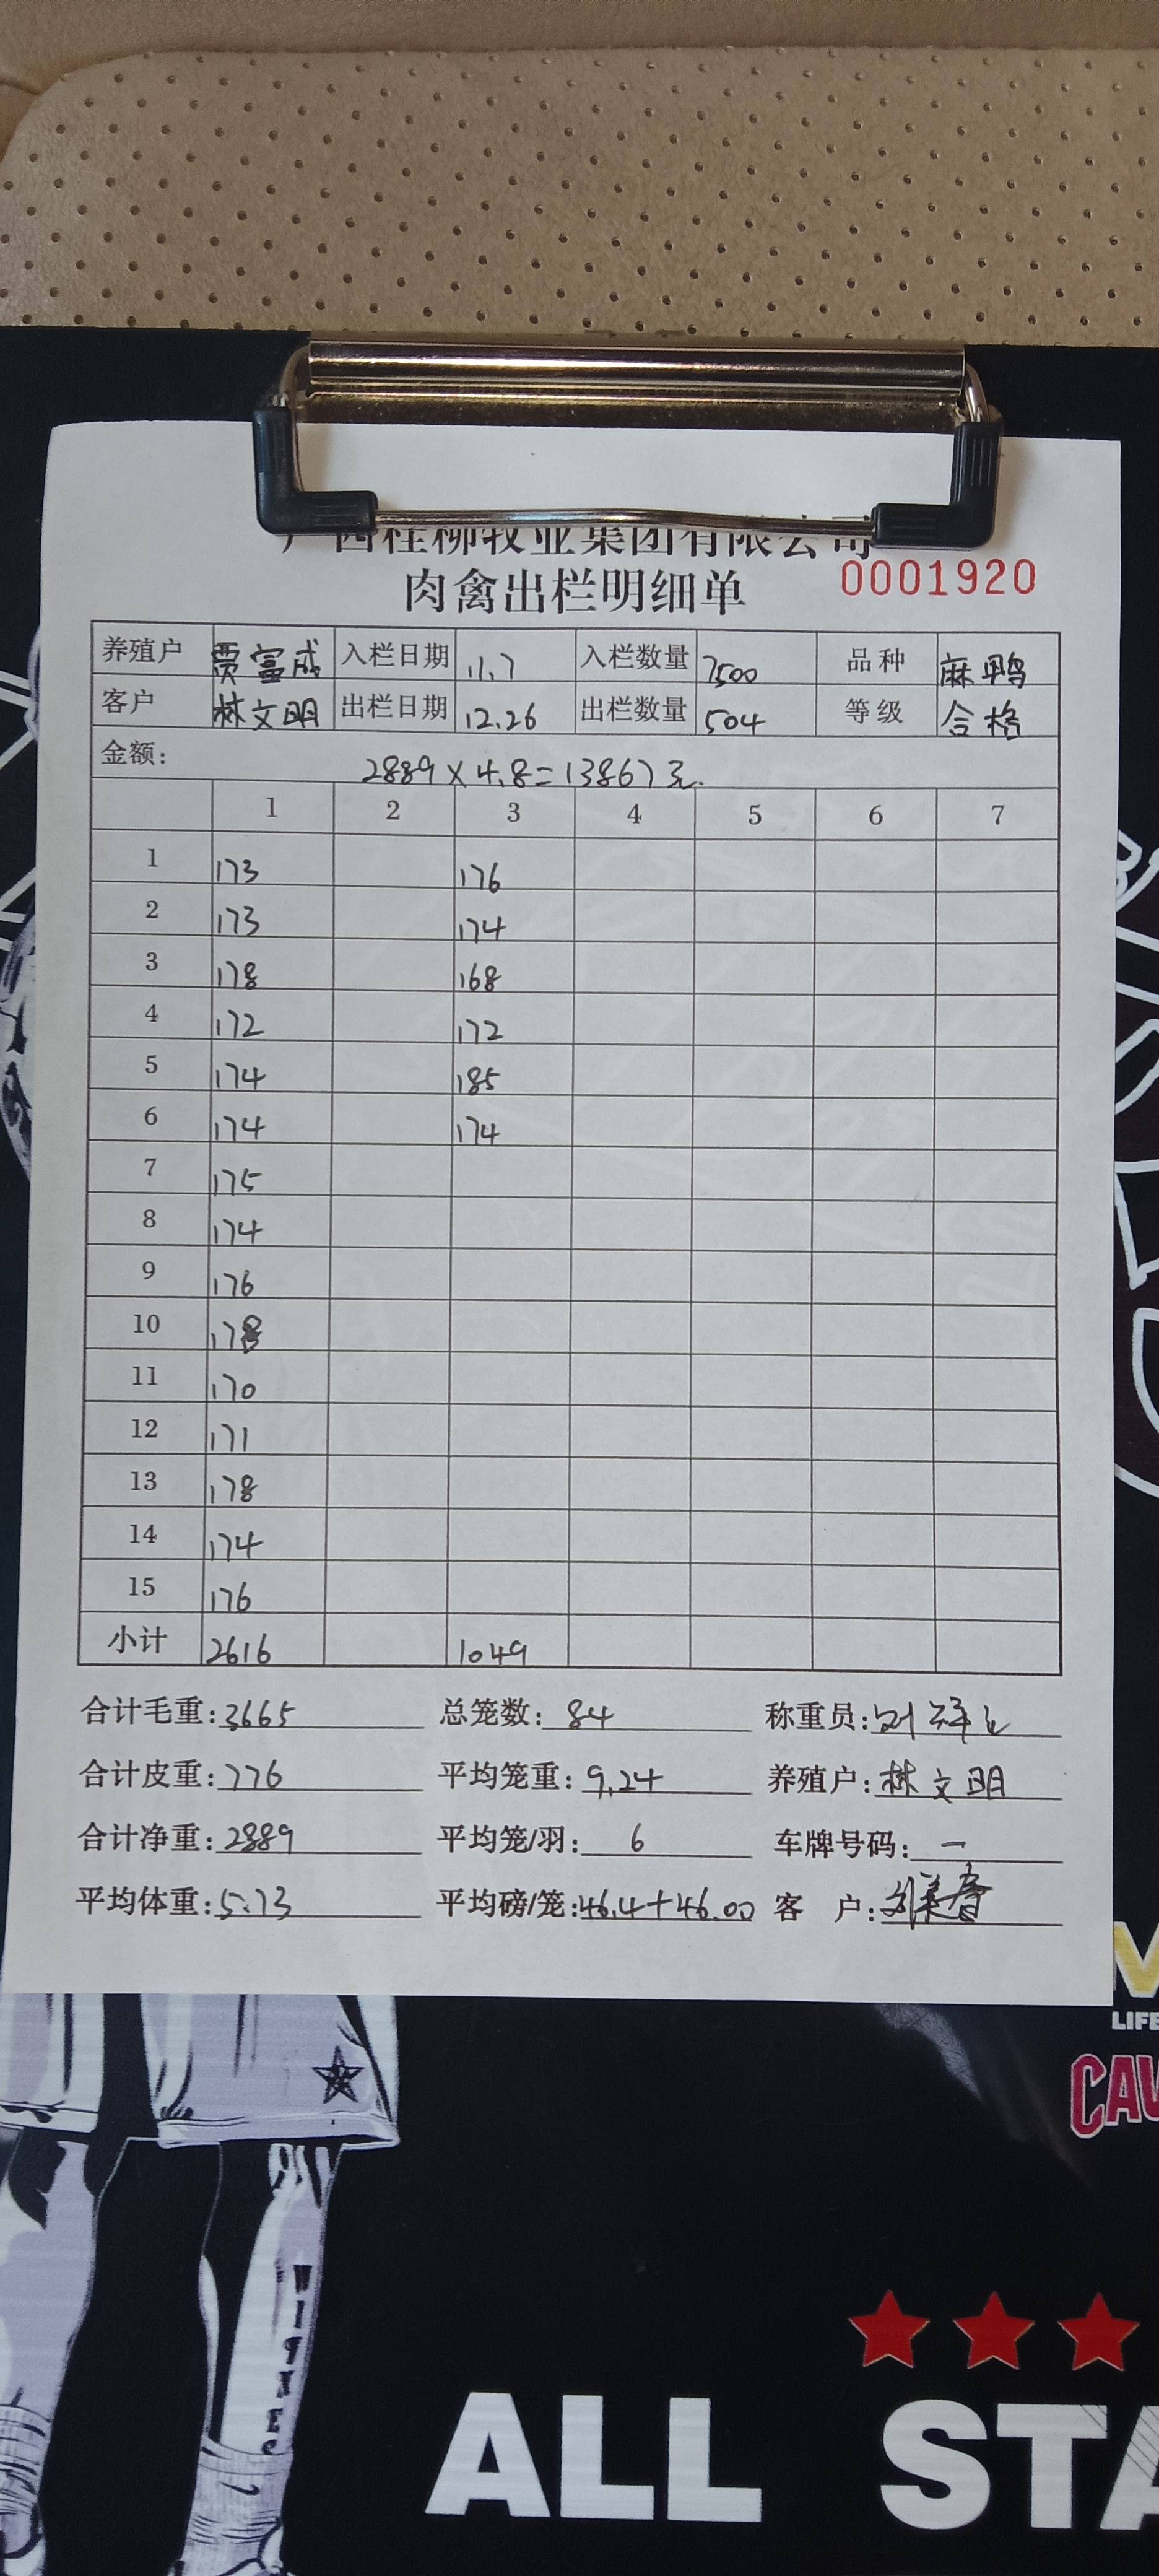 广西桂柳牧业集团有限公司
肉禽出栏明细单 0001920
养殖户 贾富成 入栏日期 11.7 入栏数量 7500 品种 麻鸭
客户 林文明 出栏日期 12.26 出栏数量 504 等级 合格
金额: 2889×4.8=13867元.
1 2 3 4 5 6 7
1 173 176
2 173 174
3 178 168
4 172 172
5 174 185
6 174 174
7 175
8 174
9 176
10 178
11 170
12 171
13 178
14 174
15 176
小计 2616 1049
合计毛重:3665 总笼数:84 称重员:刘
合计皮重:776 平均笼重:9.24 养殖户:林文明
合计净重:2889 平均笼/羽:6 车牌号码:一
平均体重:5.73 平均磅/笼:46.4+46.00 客 户:
LIFE
CAV
ALL STA